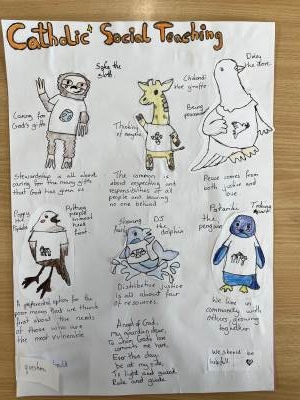 Catholic Social Teaching
Sofie the
sloth
Caring for
God's gifts
Chikondi
the giraffe
Thinking
of everyone
Being
peaceful
Davey
the dove
Stewardship is all about
caring for the many gifts
that God has given us
The common is
about respecting and
responsibilities of all
people and leaving
no one behind
Peace comes from
both justice and
love
Poppy
Putting
people
in most
need
first
Sharing
fairly
DJ
the
dolphin
Distributive justice
is all about fair
of resources.
the
penguin
A preferential option for the
poor means that we think
first about the needs
of those who are
the most vulnerable
We live in
community with
others, growing
together
Angel of God,
My guardian dear,
To whom God's love
commits me here,
Ever this day
be at my side,
To light and guard,
Rule and guide.
question
We should be